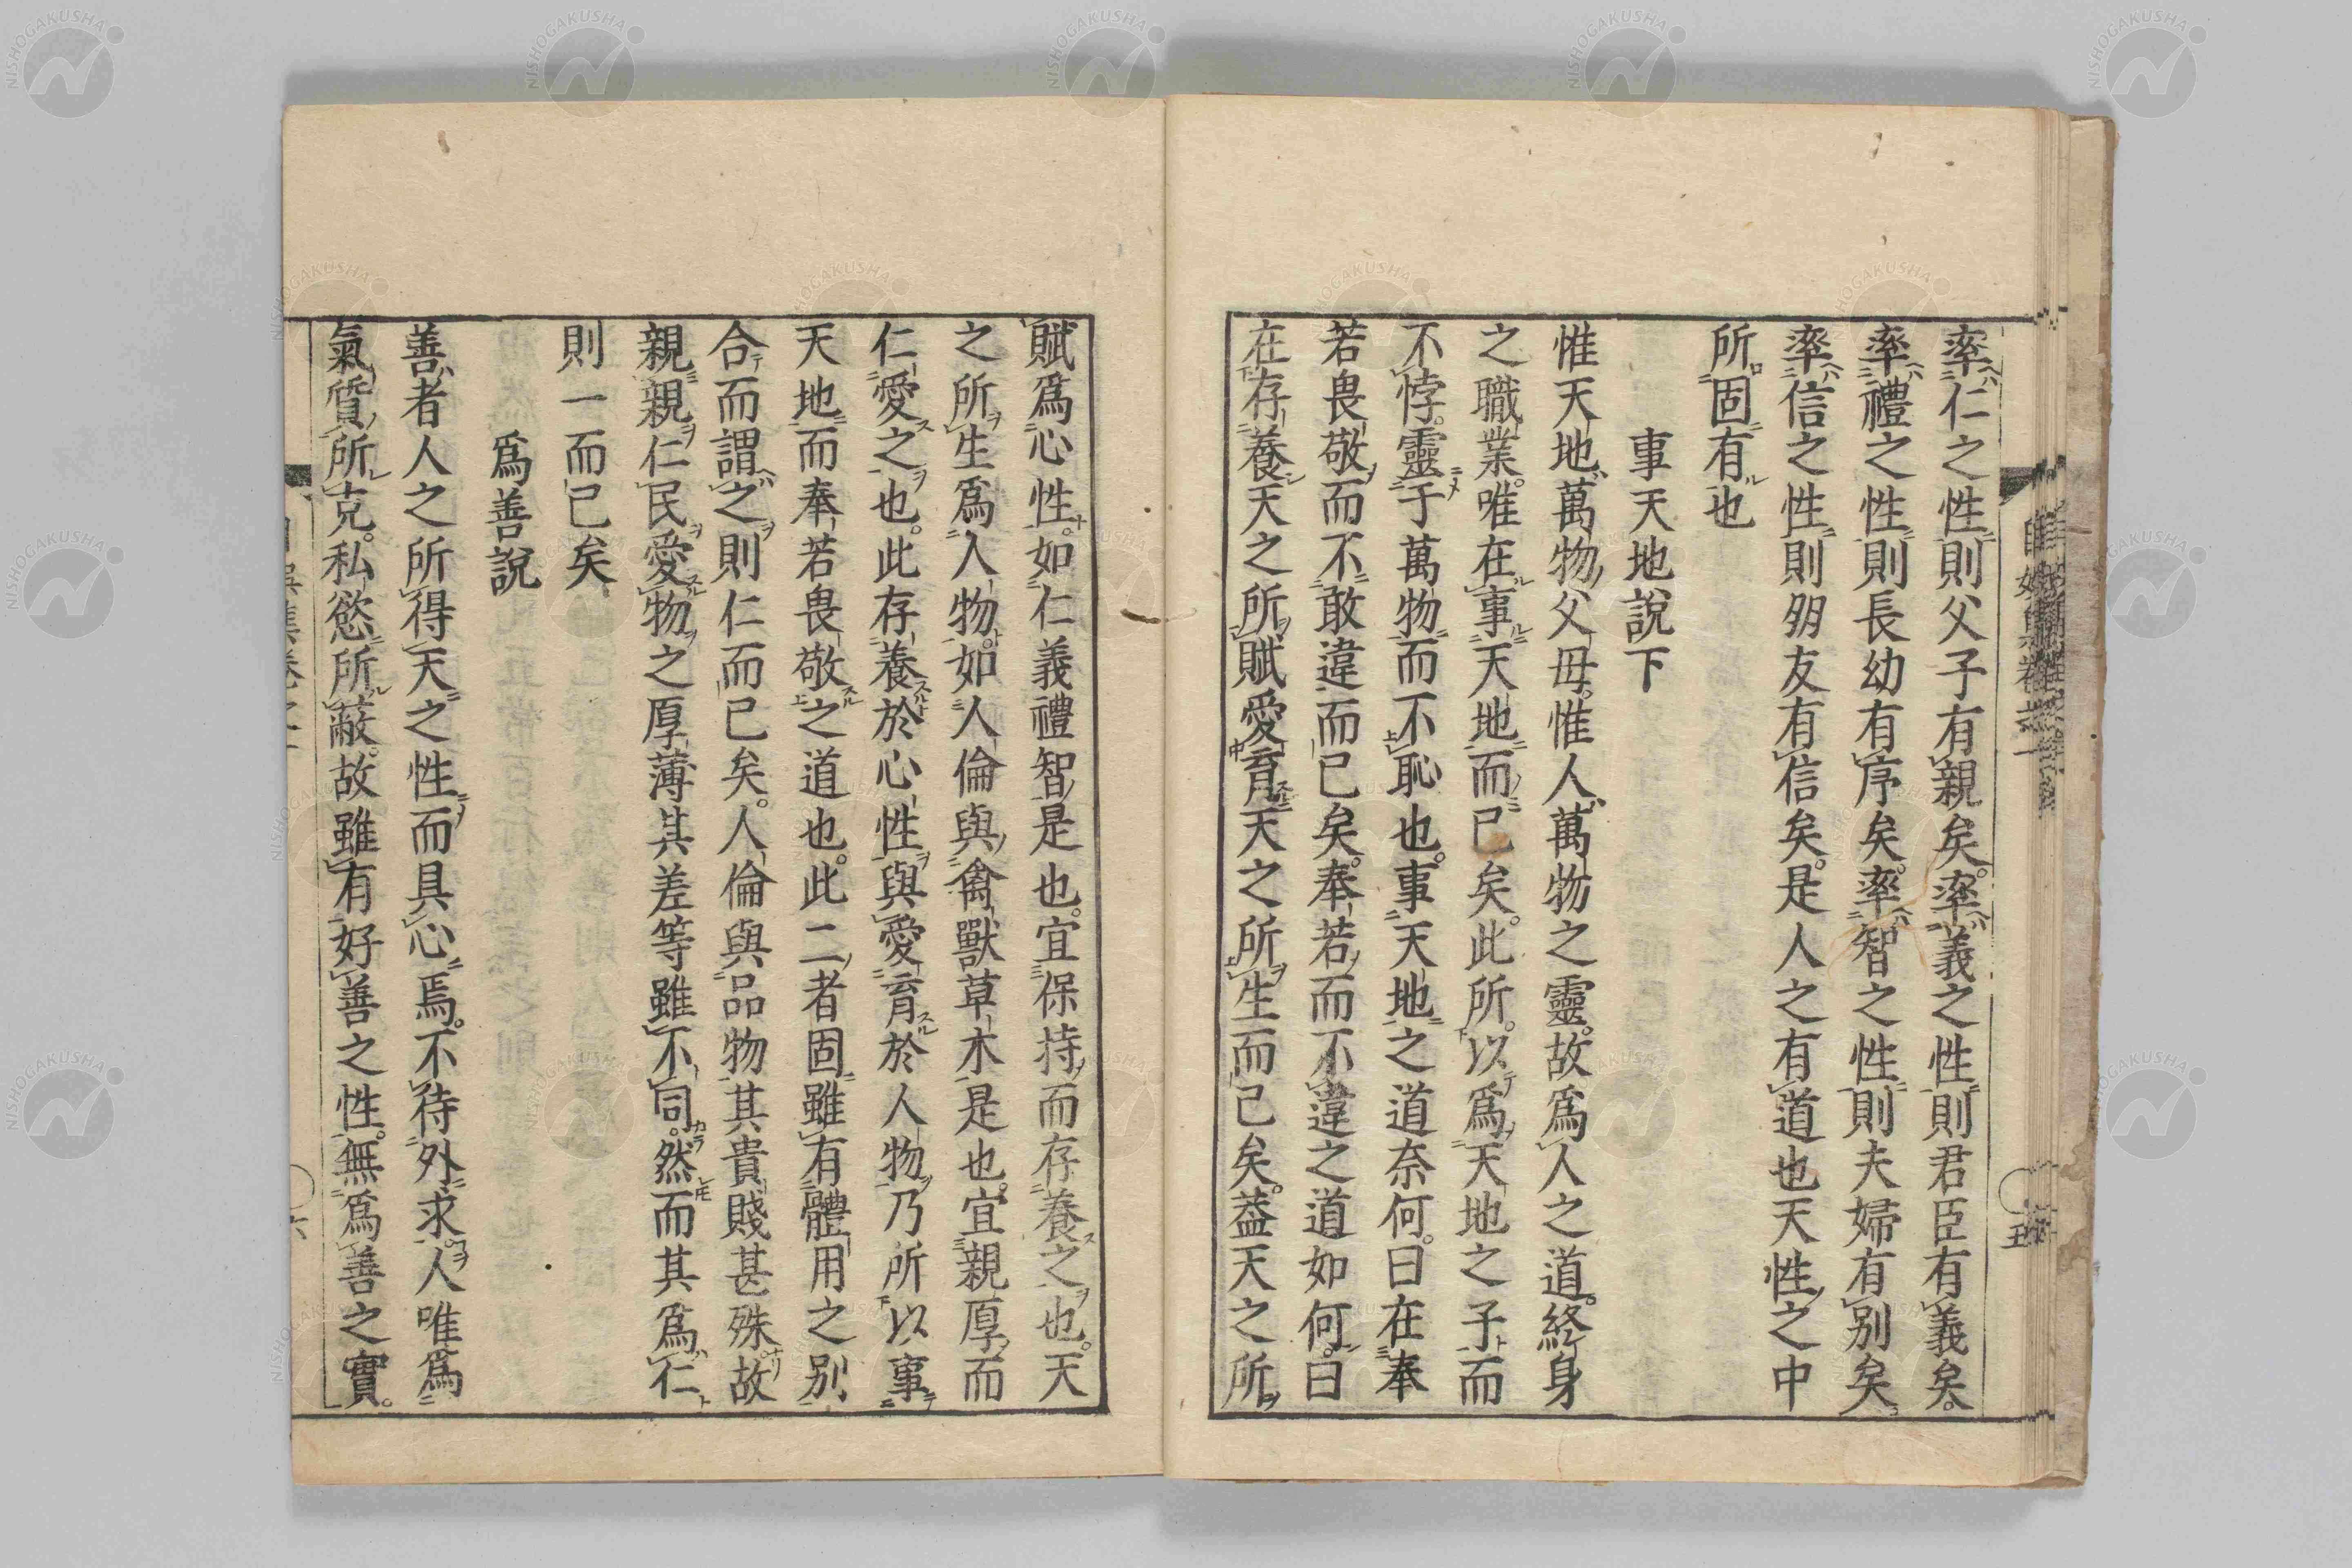 率仁之性則父子有親矣。率義之性則君臣有義矣。
率禮之性則長幼有序矣。率智之性則夫婦有別矣
率信之性則朋友有信矣。是人之有道也天性之中
所固有也
事天地說下
惟天地萬物父母。惟人萬物之靈。故爲人之道。終身
之職業。唯在事天地而已矣。此所以爲天地之子而
不悖。靈于萬物而不恥也。事天地之道奈何。曰在奉
若畏敬而不敢違而已矣。奉若而不違之道如何。曰
在存養天之所賦愛育天之所生而已矣。蓋天之所
賦爲心性。如仁義禮智是也。宜保持而存養之也。天
之所生爲人物。如人倫與禽獸草木是也。宜親厚而
仁愛之也。此存養於心性與愛育於人物乃所以事
天地而奉若畏敬之道也。此二者固雖有體用之別
合而謂之則仁而已矣。人倫與品物其貴賤甚殊故
親親仁民愛物之厚薄其差等雖不同。然而其爲仁
則一而已矣
爲善說
善者人之所得天之性而具心焉。不待外求。人唯爲
氣質所克。私慾所蔽。故雖有好善之性。無爲善之實。
五
六
NISHOGAKUSHA